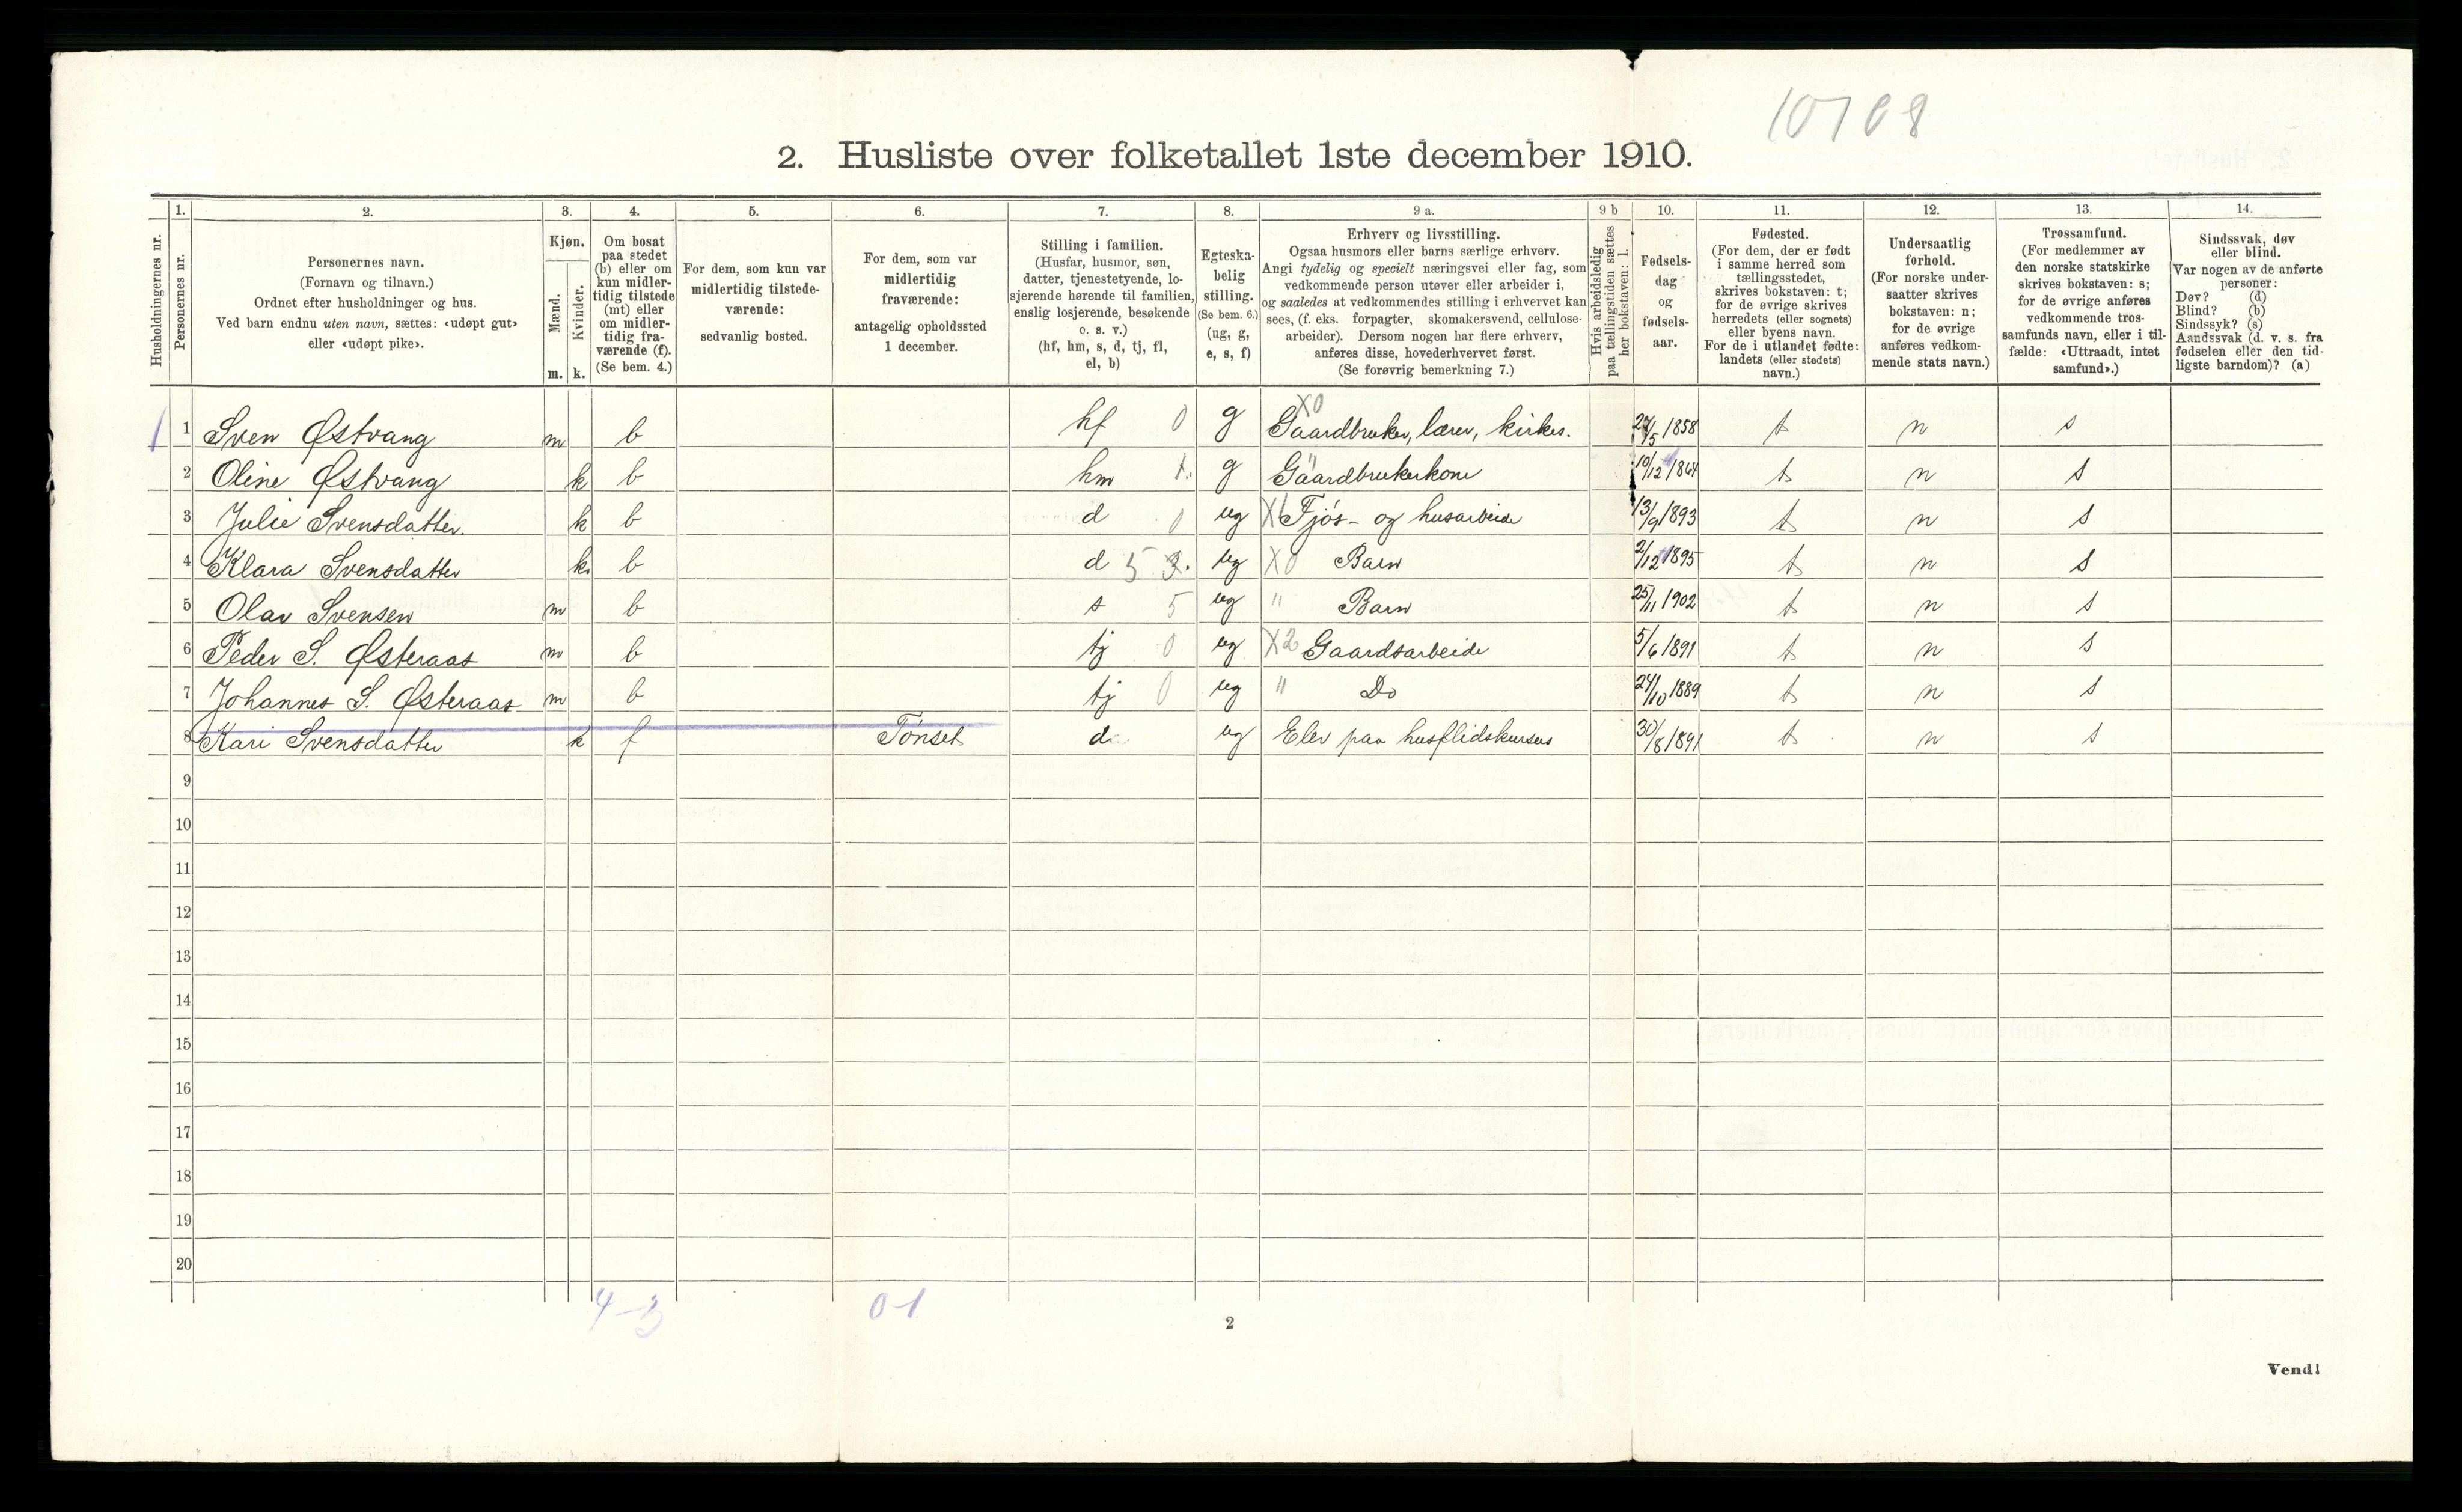 10708
2. Husliste over folketallet 1ste december 1910.
Husholdningernes nr.
1. Personernes nr.
2. Personernes navn.
(Fornavn og tilnavn.)
Ordnet efter husholdninger og hus.
Ved barn endnu uten navn, sættes: «udøpt gut»
eller «udøpt pike».
3. Kjøn.
Mænd. m.
Kvinder. k.
4. Om bosat
paa stedet
(b) eller om
kun midler-
tidig tilstede
(mt) eller
om midler-
tidig fra-
værende (f).
(Se bem. 4.)
5. For dem, som kun var
midlertidig tilstede-
værende:
sedvanlig bosted.
6. For dem, som var
midlertidig
fraværende:
antagelig opholdssted
1 december.
7. Stilling i familien.
(Husfar, husmor, søn,
datter, tjenestetyende, lo-
sjerende hørende til familien,
enslig losjerende, besøkende
o. s. v.)
(hf, hm, s, d, tj, fl,
el, b)
8. Egteska-
belig
stilling.
(Se bem. 6.)
(ug, g,
e, s, f)
9 a. Erhverv og livsstilling.
Ogsaa husmors eller barns særlige erhverv.
Angi tydelig og specielt næringsvei eller fag, som
vedkommende person utøver eller arbeider i,
og saaledes at vedkommendes stilling i erhvervet kan
sees, (f. eks. forpagter, skomakersvend, cellulose-
arbeider). Dersom nogen har flere erhverv,
anføres disse, hovederhvervet først.
(Se forøvrig bemerkning 7.)
9 b Hvis arbeidsledig
paa tællingstiden sættes
her bokstaven: l.
10. Fødsels-
dag
og
fødsels-
aar.
11. Fødested.
(For dem, der er født
i samme herred som
tællingsstedet,
skrives bokstaven: t;
for de øvrige skrives
herredets (eller sognets)
eller byens navn.
For de i utlandet fødte:
landets (eller stedets)
navn.)
12. Undersaatlig
forhold.
(For norske under-
saatter skrives
bokstaven: n;
for de øvrige
anføres vedkom-
mende stats navn.)
13. Trossamfund.
(For medlemmer av
den norske statskirke
skrives bokstaven: s;
for de øvrige anføres
vedkommende tros-
samfunds navn, eller i til-
fælde: «Uttraadt, intet
samfund».)
14. Sindssvak, døv
eller blind.
Var nogen av de anførte
personer:
Døv? (d)
Blind? (b)
Sindssyk? (s)
Aandssvak (d. v. s. fra
fødselen eller den tid-
ligste barndom)? (a)
1 1 Sven Østvang m b hf 0 g X0 Gaardbruker, lærer, kirkes. 27/5 1858 t n s
2 Oline Østvang k b hm 1. g " Gaardbrukerkone 10/12 1864 t n s
3 Julie Svensdatter. k b d 0 ug X1 Fjøs- og husarbeide 13/9 1893 t n s
4 Klara Svensdatter k. b d 5 3. ug X0 Barn 2/12 1895 t n s
5 Olav Svensen m b s 5 ug " Barn 25/11 1902 t n s
6 Peder S. Østeraas m b tj 0 ug X2 Gaardsarbeide 5/6 1891 t n s
7 Johannes S. Østeraas m b tj 0 ug " Do 24/10 1889 t n s
8 Kari Svensdatter k f Tønset d. ug Elev paa husflidskursus 30/8 1891 t n s
9
10
11
12
13
14
15
16
17
18
19
20
4-3 0-1
2
Vend!